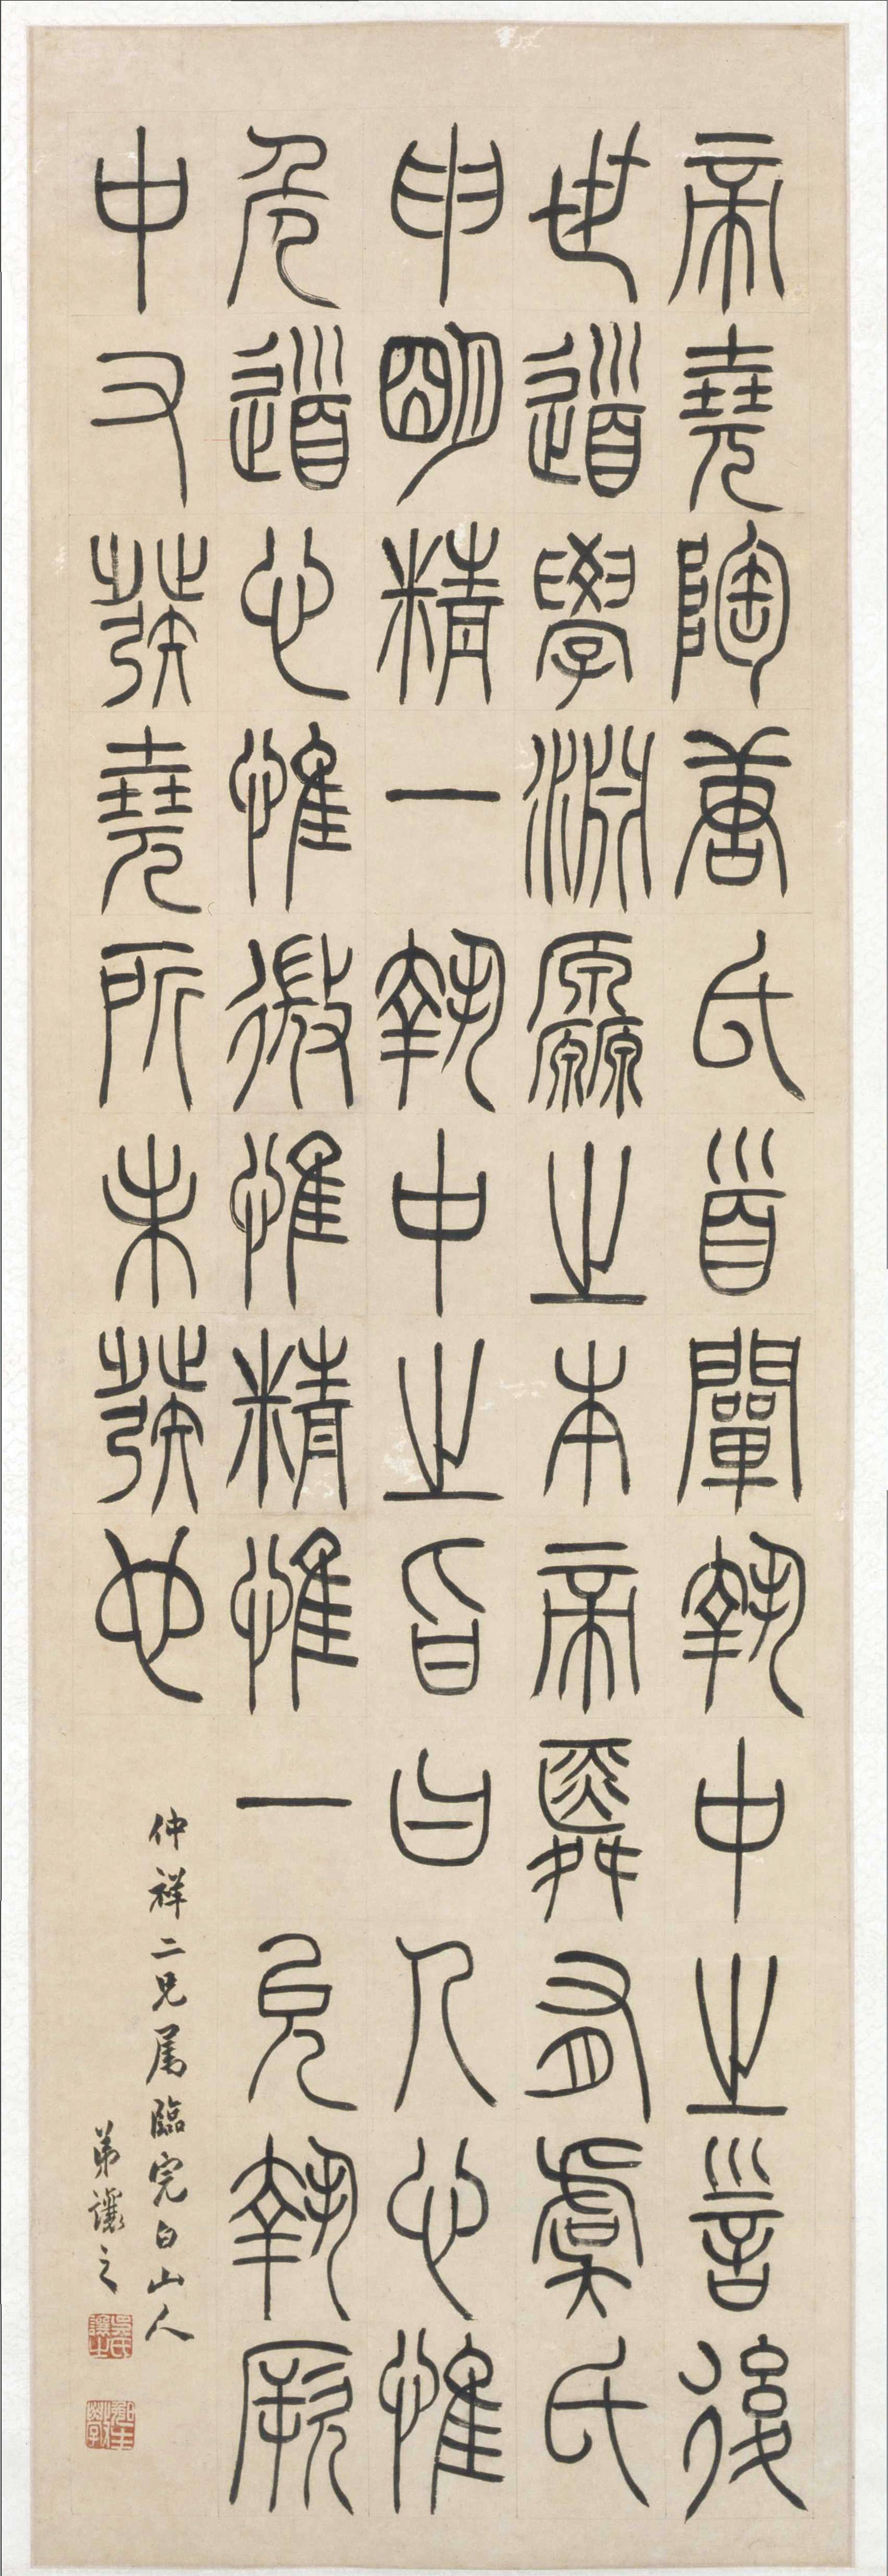 帝堯陶唐氏首闡執中之言後
世道學淵源之本帝舜有虞氏
申明精一執中之旨曰人心惟
危道心惟微惟精惟一允執厥
中又發堯所未發也
仲祥二兄属臨完白山人
弟讓之
吳氏讓之